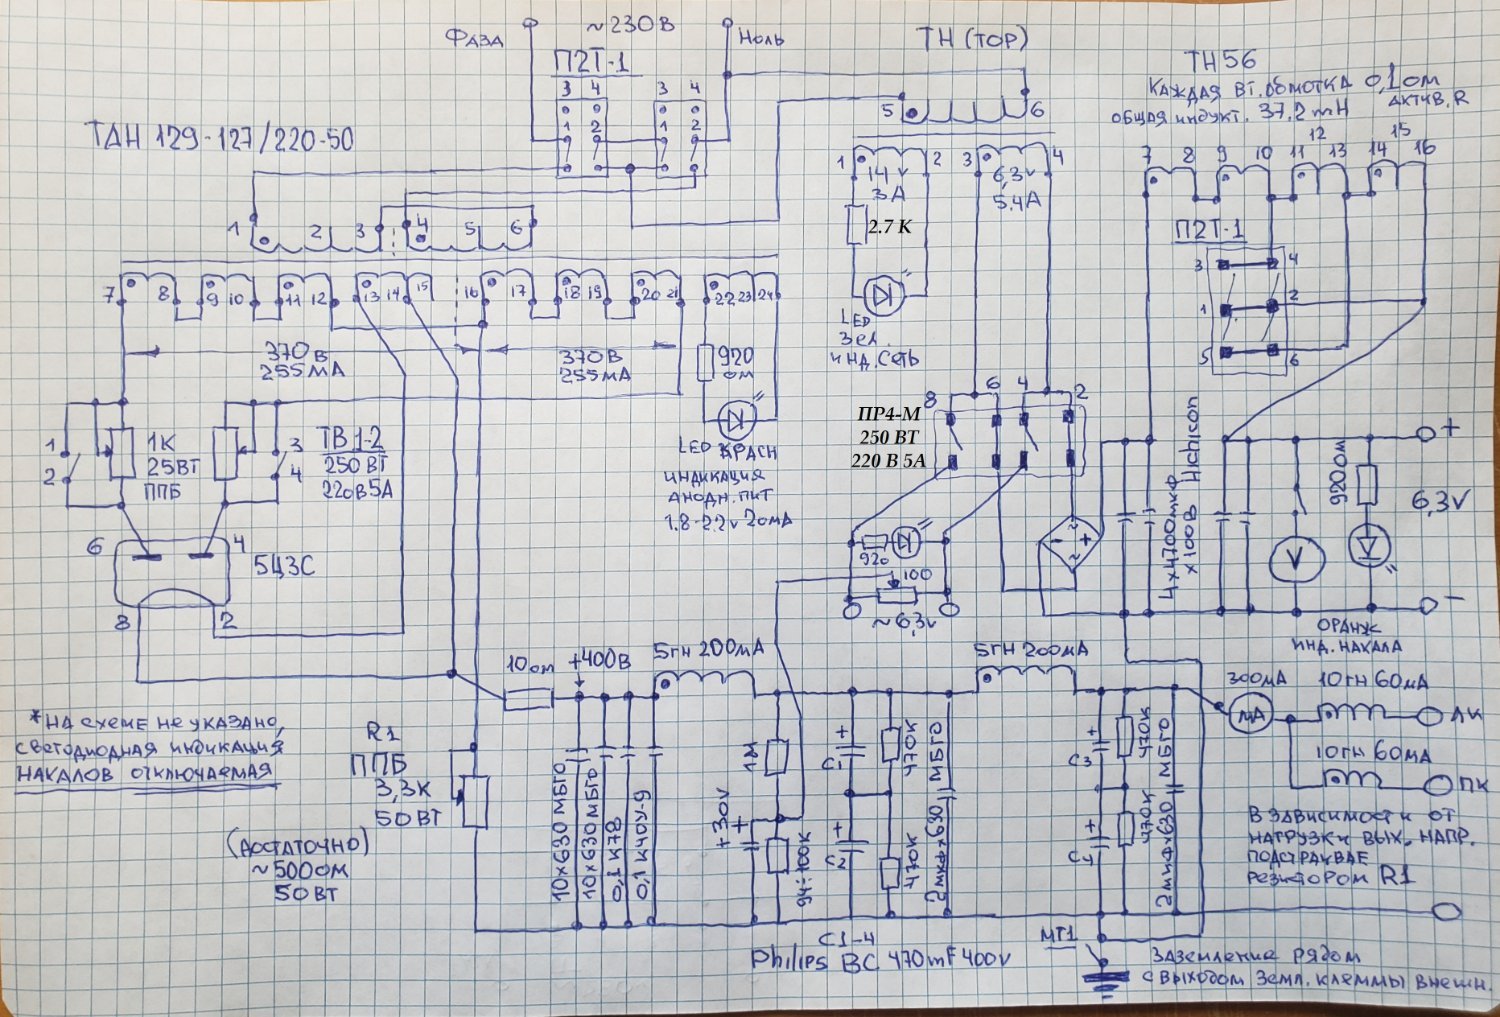 ФАЗА
~230В
Ноль
П2Т-1
3 4 3 4
1 2 1 2
ТН (ТОР)
5 6
ТН56
Каждая вт. обмотка 0,1 ом
актив. R
общая индукт. 37,2 mH
ТАН 129-127/220-50
1 2 3 4 5 6
7 8 9 10 11 12 13 14 15 16 17 18 19 20 21 22 23 24
1 2 3 4
14 v
3А
6,3v
5,4А
2.7 К
LED
Зел.
инд. сеть
7 8 9 10 11 12 13 14 15 16
П2Т-1
3 4
1 2
5 6
370В
255мА
370В
255мА
920
ом
LED КРАСН
индикация
анодн. пит
1.8-2.2v 20мА
1 2
1К
25ВТ
ППБ
3
4
ТВ1-2
250 ВТ
220В 5А
6 4
5Ц3С
8 2
8 6 4 2
ПР4-М
250 ВТ
220 В 5А
920
100
~6,3v
- + ~ ~
4х4700мкф
х100В Hichicon
V
920ом
+
6,3V
-
ОРАНЖ
инд. накала
10ом
+400В
5гн 200мА
5гн 200мА
300мА
мА
10гн 60мА
ЛК
10гн 60мА
ПК
*На схеме не указано,
светодиодная индикация
накалов отключаемая
R1
ППБ
3,3К
50ВТ
(достаточно)
~500ом
50ВТ
10х630 МБГО
10х630 МБГО
0,1 К78
0,1 К40У-9
1М
+30V
+
94÷100К
+
С1
+
С2
470К
470К
2мкфх630 МБГО
+
С3
+
С4
470К
470К
2мкфх630 МБГО
В зависимости от
нагрузки вых. напр.
подстраивае
резистором R1
С1-4
Philips ВС 470mF 400v
МТ1
Заземление рядом
с выходом земл. клеммы внешн.